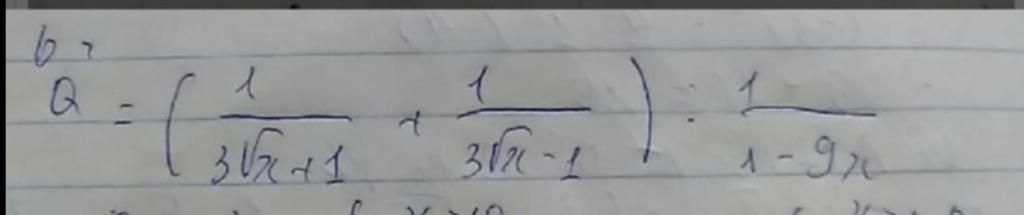 b,
Q = ( 1/(3√x+1) + 1/(3√x-1) ) : 1/(1-9x)